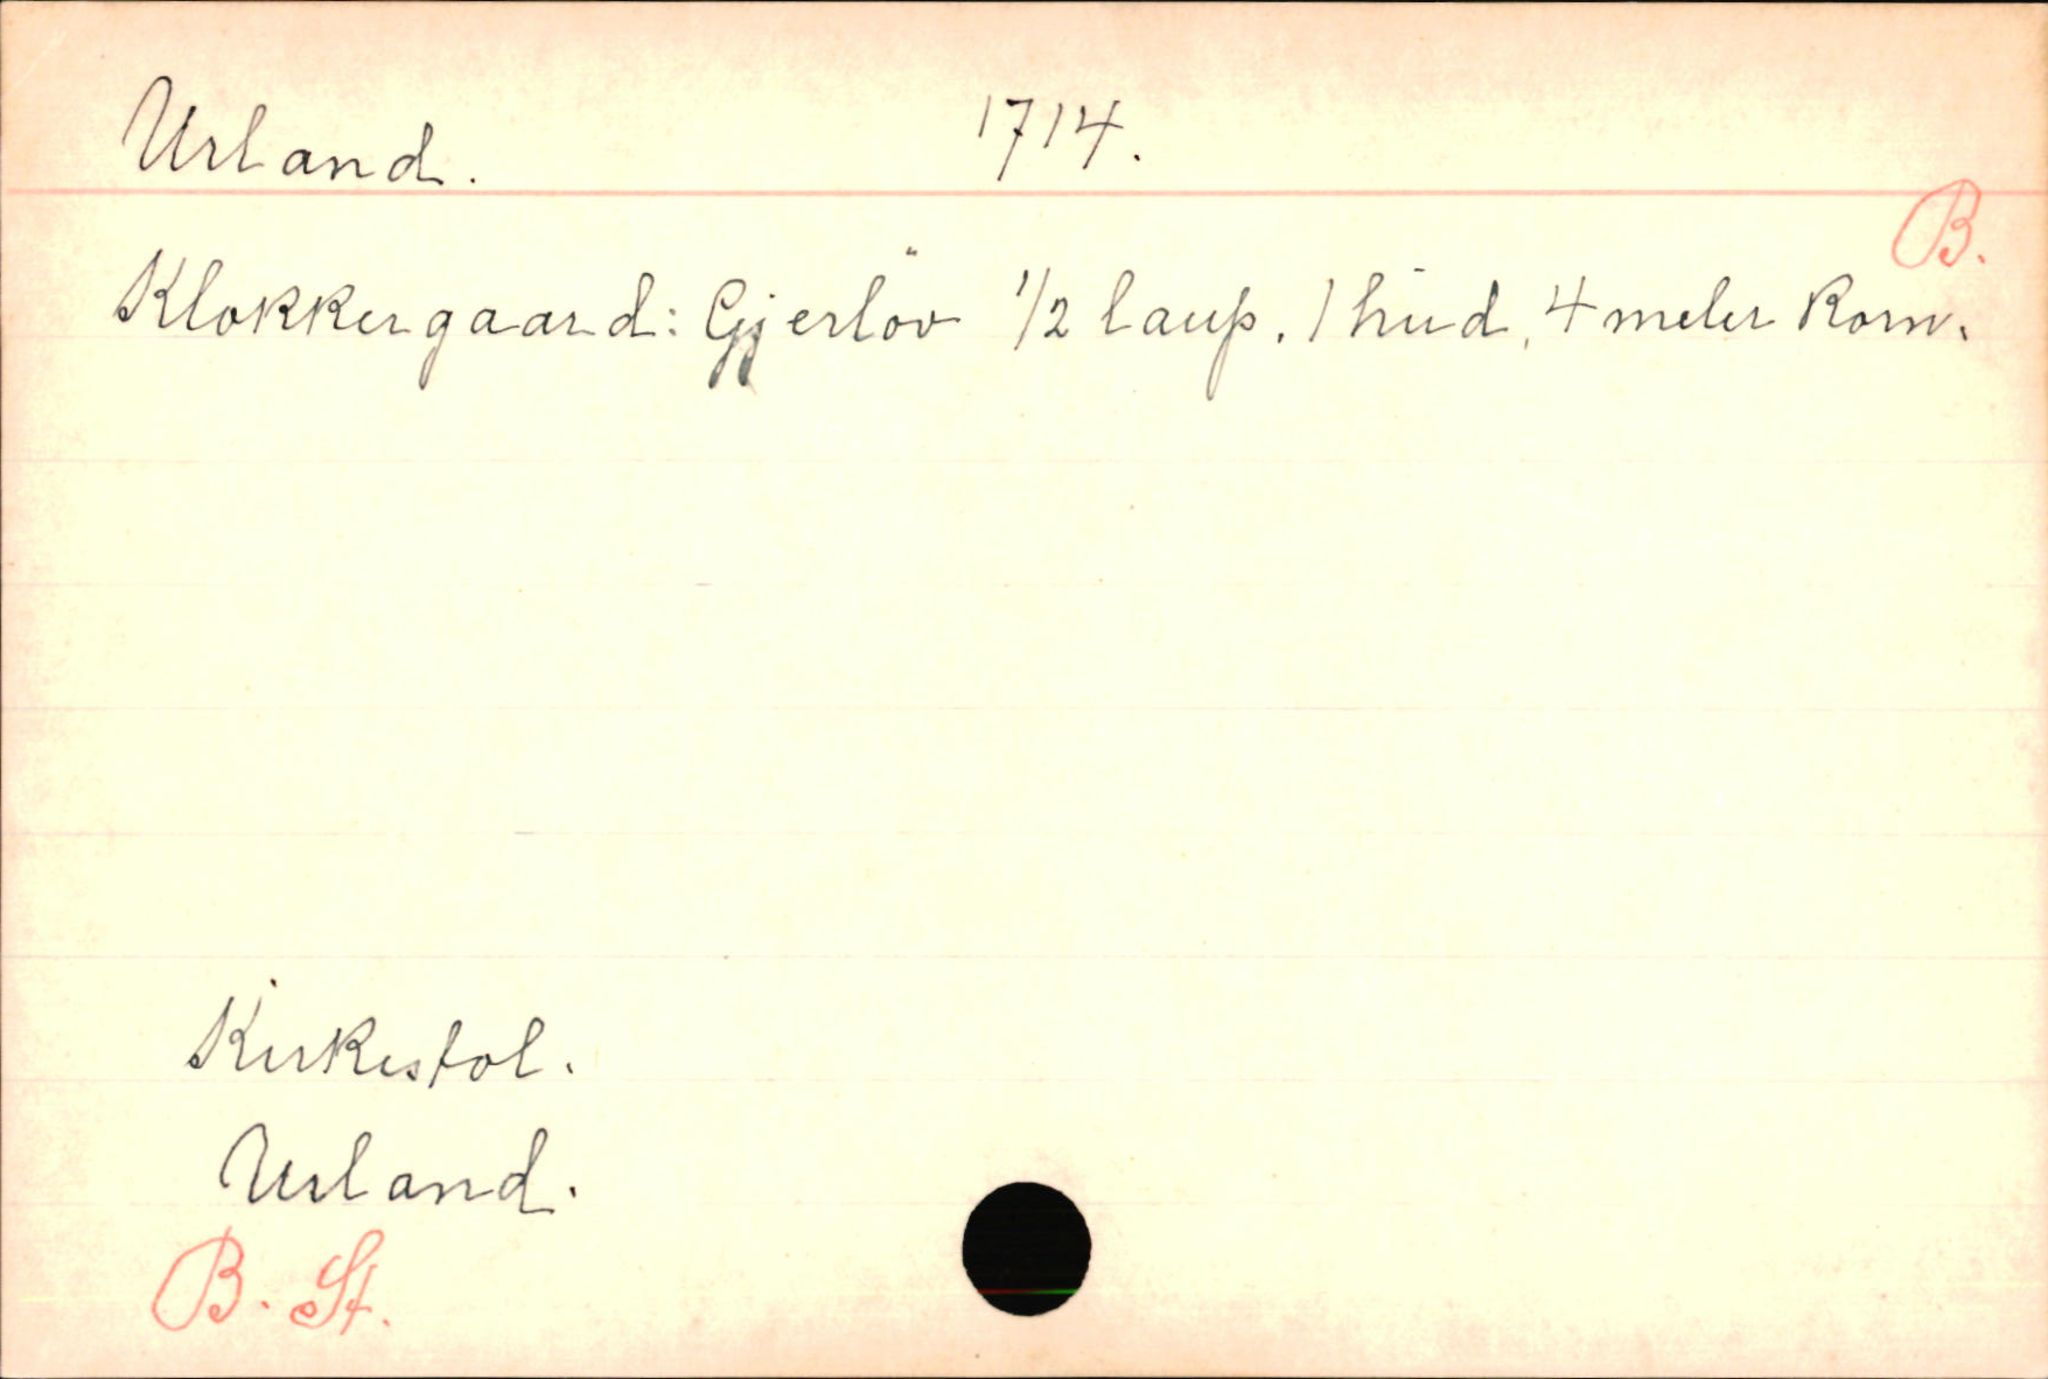 Urland. 1714.
B.
Klokkergaard: Gjerlöv 1/2 laup. 1 hud, 4 meler korn.
Kirkestol.
Urland.
B. St.